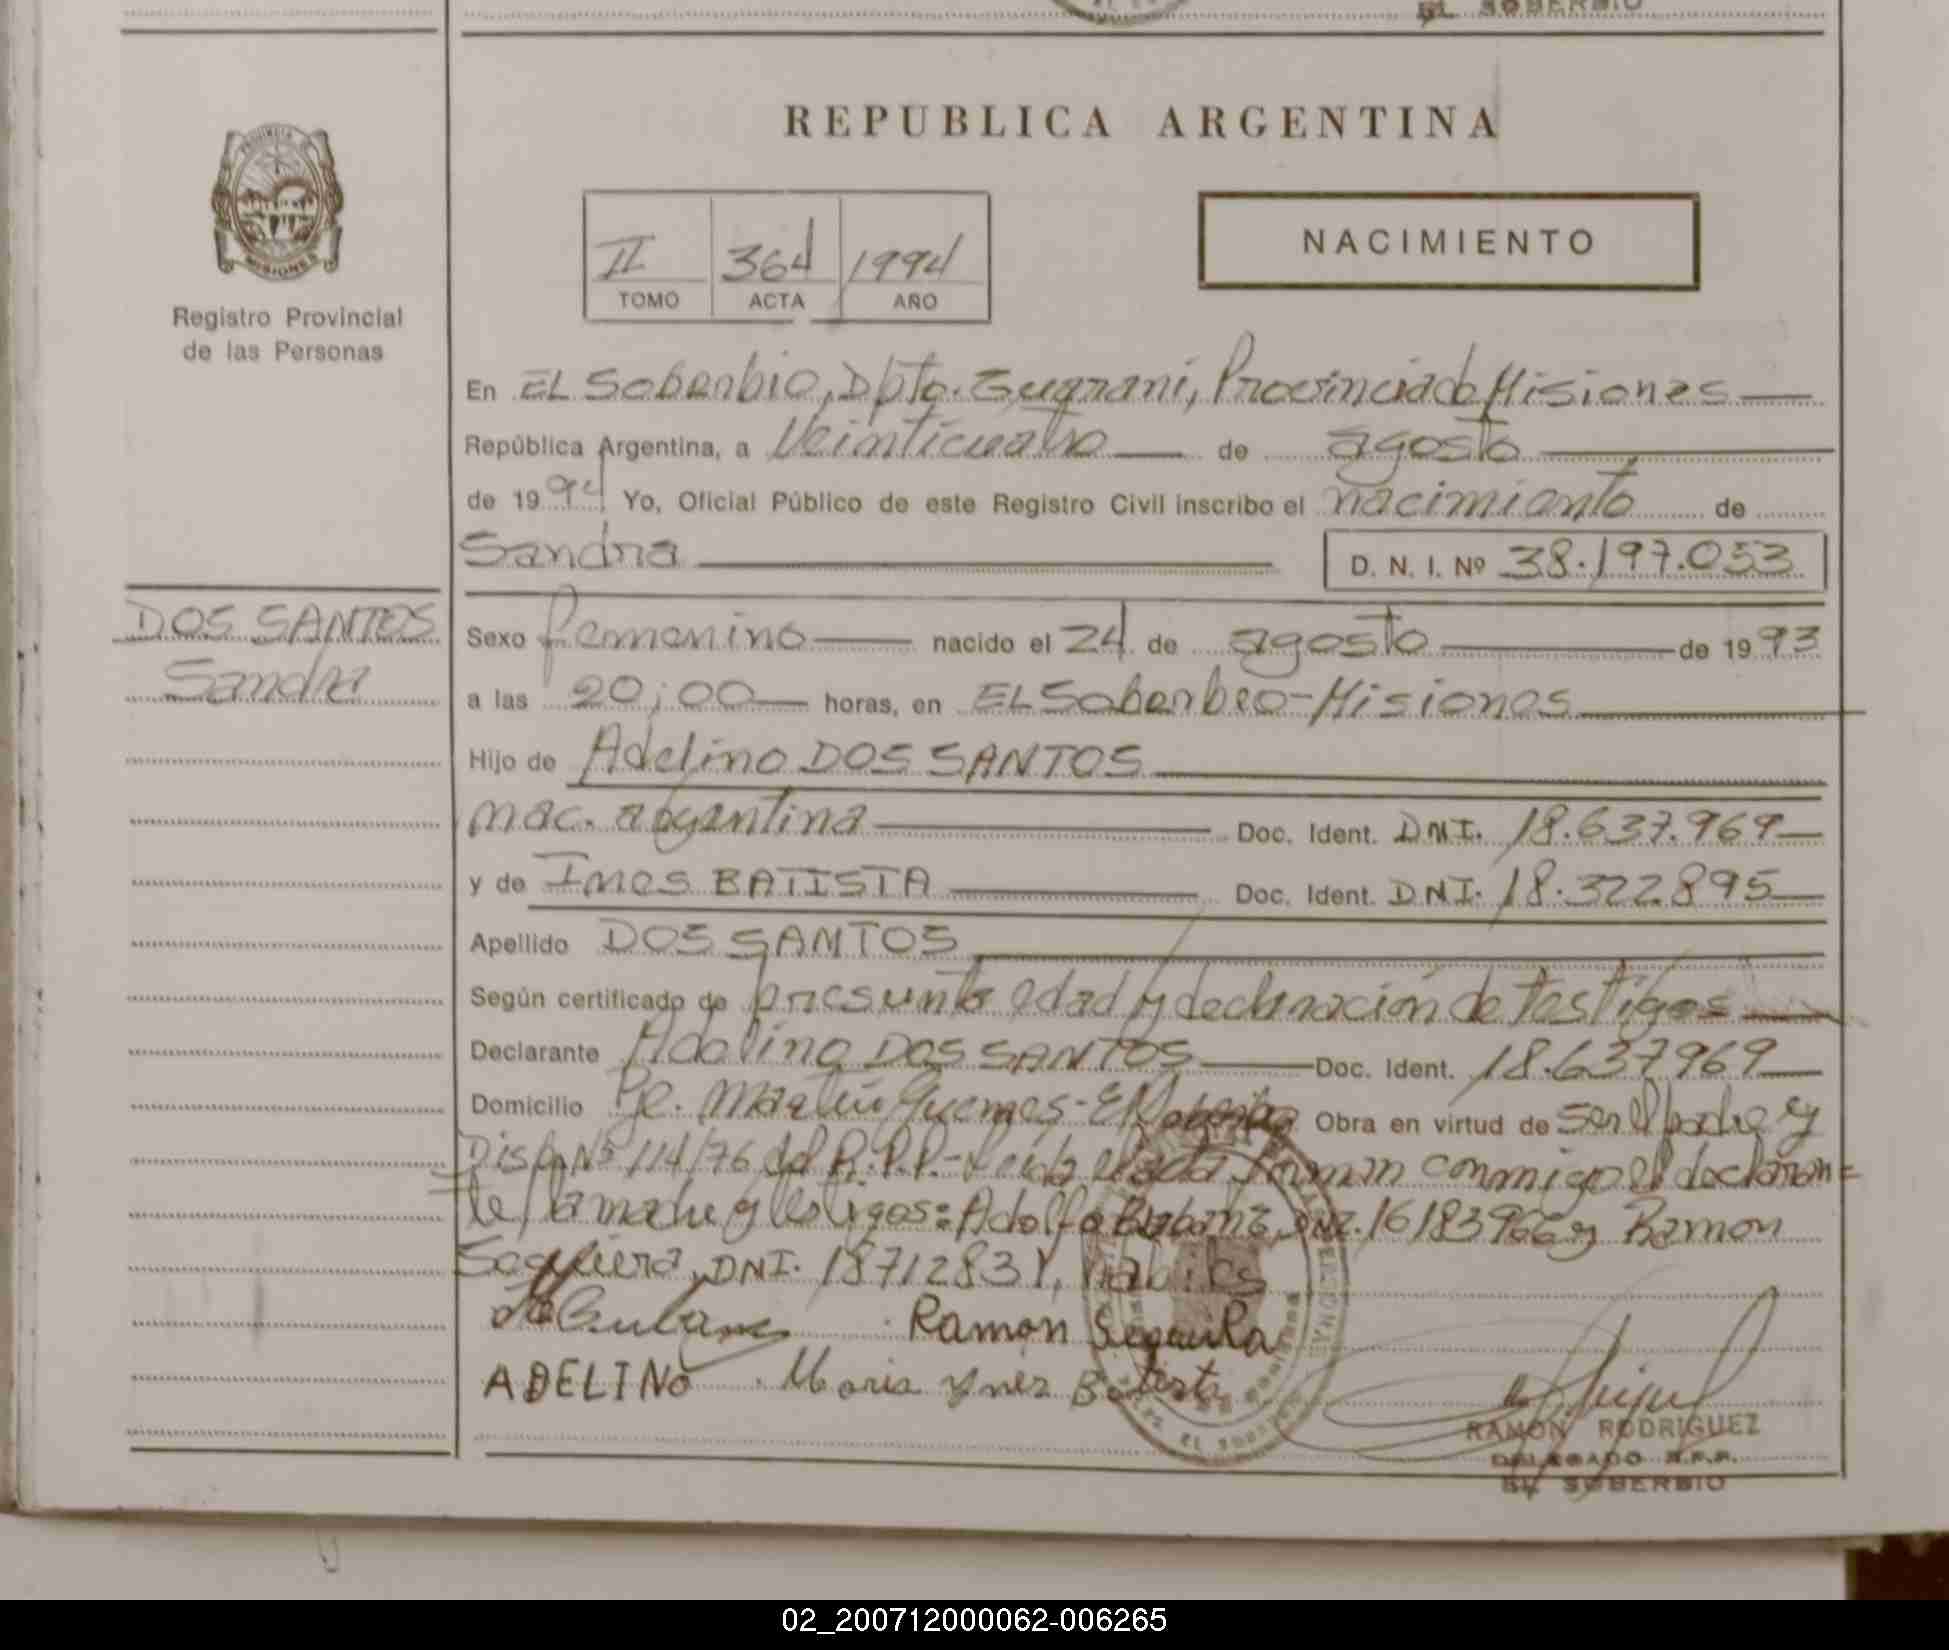 EL SOBERBIO
REPUBLICA ARGENTINA
PROVINCIA D
MISIONES
Registro Provincial
de las Personas
II 364 1994
TOMO ACTA AÑO
NACIMIENTO
En EL Soberbio, Dpto. Guarani, Provincia de Misiones
República Argentina, a Veinticuatro de agosto
de 1994 Yo, Oficial Público de este Registro Civil inscribo el nacimiento de
Sandra D. N. I. Nº 38.197.053
DOS SANTOS
Sandra
Sexo femenino nacido el 24 de agosto de 1993
a las 20;00 horas, en EL Soberbeo-Misiones
Hijo de Adelino DOS SANTOS
nac. argentina Doc. Ident. DNI. 18.637.969
y de Ines BATISTA Doc. Ident. DNI. 18.322.895
Apellido DOS SANTOS
Según certificado de presunta edad y declaración de testigos
Declarante Adelino DOS SANTOS Doc. Ident. 18.637969
Domicilio Pje. Martin Guemes - El Soberbio Obra en virtud de ser el padre y
Disp. Nº 114/76 del R.P.P.- Leida el acta firman conmigo el declaran=
te, la madre y testigos: Adolfo DNI. 16183966 y Ramon
Sequiera, DNI. 18712831, habiles
Ramon Sequila
ADELINO Maria Ynez Batista
RAMON RODRIGUEZ
DELEGADO R.P.P.
EL SOBERBIO
02_200712000062-006265